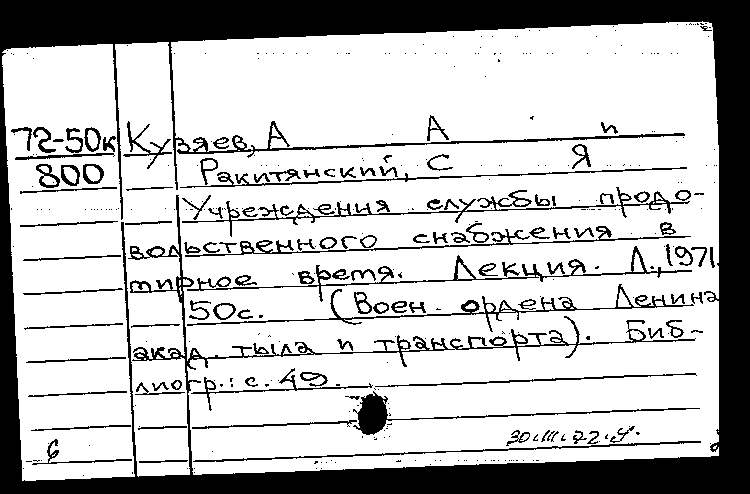 72-50к Кузяев, А А и
800 Ракитянский, С Я
Учреждения службы продо-
вольственного снабжения в
мирное время. Лекция. Л., 1971.
50с. (Воен. ордена Ленина
акад. тыла и транспорта). Биб-
лиогр.: с. 49.
6 30.III.72